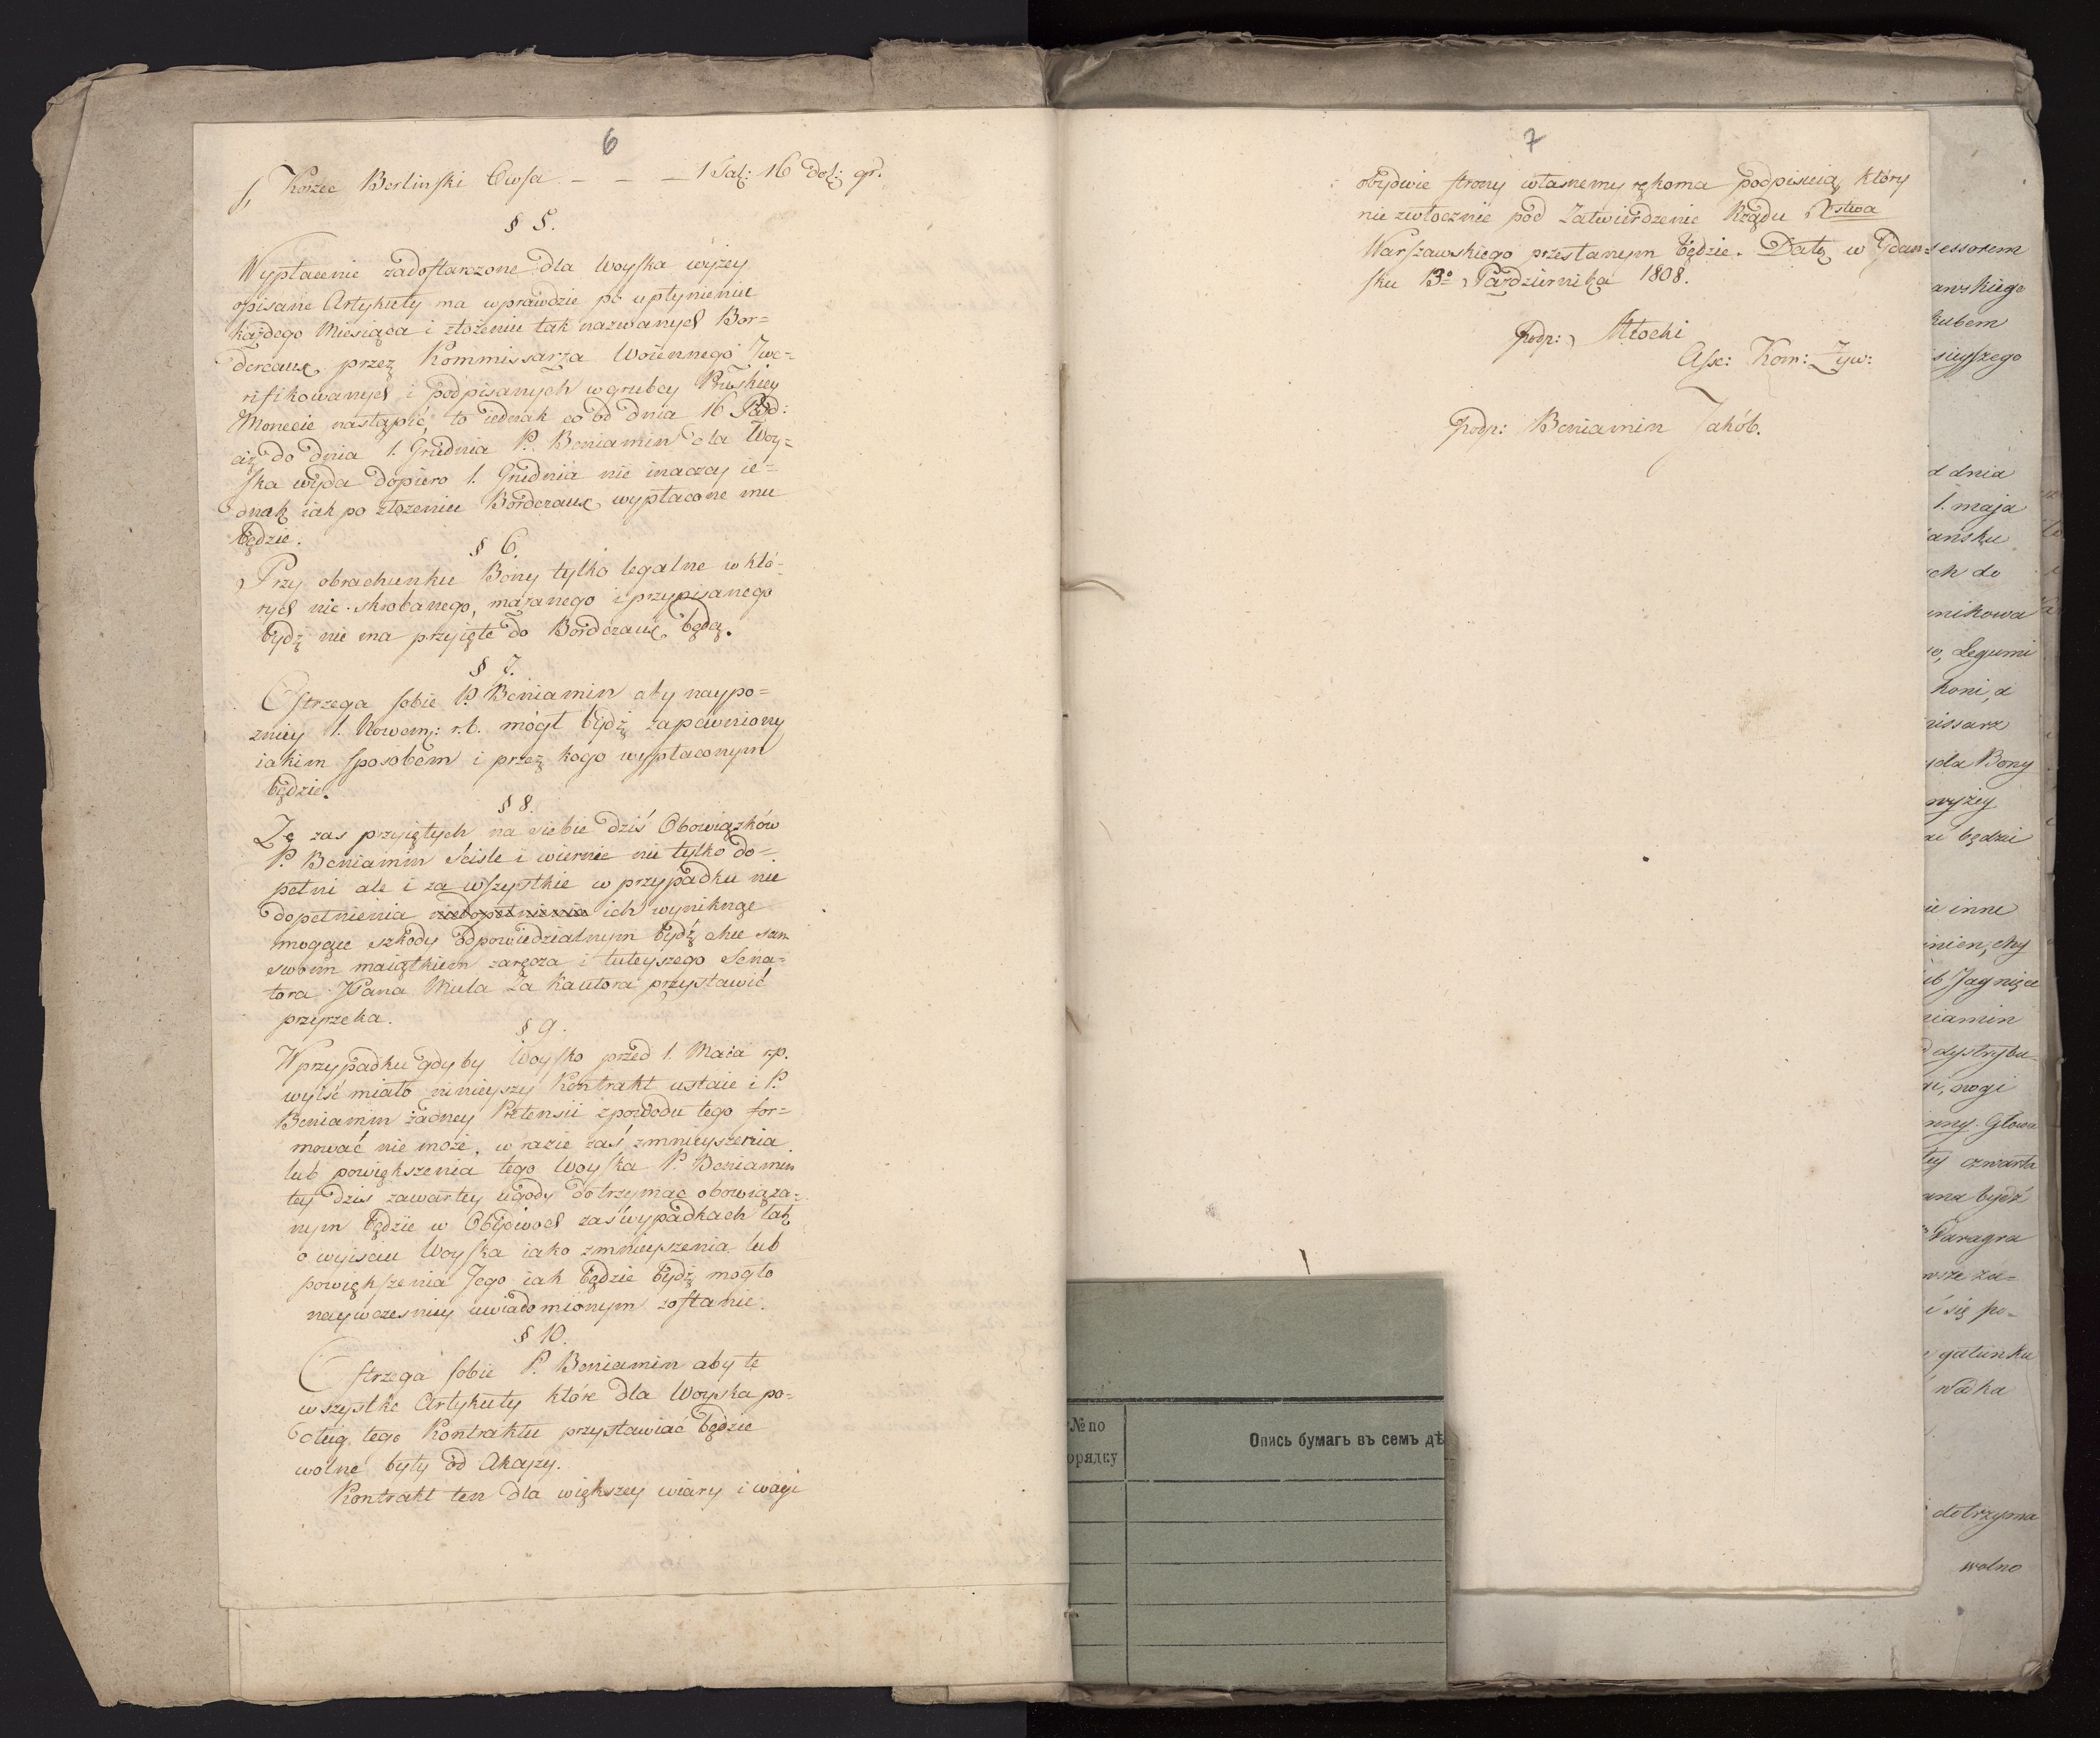 6
f, Korzec Berlinski Owsa — — — 1 Tal: 16 dob: gr.
§ 5.
Wypłacenie zadostarczone dla Woyska wyżey
opisane Artykuły ma wprawdzie po upłynieniu
każdego Miesiąca i złożeniu tak nazwanych Bor=
dereaux przez Kommissarza Woiennego Zwe=
rifikowanych i podpisanych w grubey Pruskiey
Monecie nastąpić, to iednak co od dnia 16 Paźd:
aż do dnia 1. Grudnia P. Beniamin dla Woy=
ska wyda dopiero 1. Grudnia nie inaczey ie=
dnak iak po złożeniu Borderaux wypłacone mu
będzie.
§ 6.
Przy obrachunku Bony tylko legalne w któ=
rych nic skrobanego, mazanego i przypisanego
bydź nie ma przyięte do Borderaux będą.
§ 7.
Ostrzega sobie P. Beniamin aby naypo=
zniey 1. Nowem: r.b. mógł bydź zapewniony
iakim sposobem i przez kogo wypłaconym
będzie.
§ 8.
Ze zas przyiętych na siebie dziś Obowiązków
P. Beniamin ściśle i wiernie nie tylko do=
pełni ale i za wszystkie w przypadku nie
dopełnienia niedopełnienia ich wyniknąć
mogące szkody odpowiedzialnym bydź chce sam
swoim maiątkiem zaręcza i tuteyszego Sena=
tora JPana Mula Za Kautora przystawić
przyrzeka.
§ 9.
W przypadku gdyby Woysko przed 1. Maia r.p.
wyiść miało ninieyszy Kontrakt ustaie i P.
Beniamin żadney Pretensii z powodu tego for=
mować nie może, w razie zaś zmnieyszenia
lub powiększenia tego Woyska P. Beniamin
tey dzis zawartey ugody dotrzymać obowiąza=
nym będzie w Obydwoch zaś wypadkach tak
o wyisciu Woyska iako zmnieyszenia lub
powiększenia Jego iak będzie bydź mogło
naywczesniey uwiadomionym zostanie.
§ 10.
Ostrzega sobie P. Beniamin aby te
wszystke Artykuły które dla Woyska po=
dług tego Kontraktu przystawiać będzie
wolne były od Akcyzy.
Kontrakt ten dla większey wiary i wagi
7
obydwie strony własnemy rękoma podpisuią, który
nie zwłocznie pod Zatwierdzenie Rządu Xstwa
Warszawskiego przesłanym będzie. Datt. w Gdan=
sku 13º Pazdziernika 1808.
Podp: Młocki
Asse: Kom: Żyw:
Podp: Beniamin Jakób.
essorem
awskiego
kubem
sieyszego
d dnia
1. maja
ańsku
ch do
unikowa
o, Legumi
koni, a
nissarz
yda Bony
wyżey
ać będzie
ie inne
inien, chy
ub Jagnięce
niamin
d dystrybu=
ki, nogi
nny. Głowa
tey czwarta
ana bydź
Paragra
wsze za=
ć się po=
gatunku
wodka
dotrzyma
wolno
№ по
орядку
Опись бумагъ въ семъ дѣ